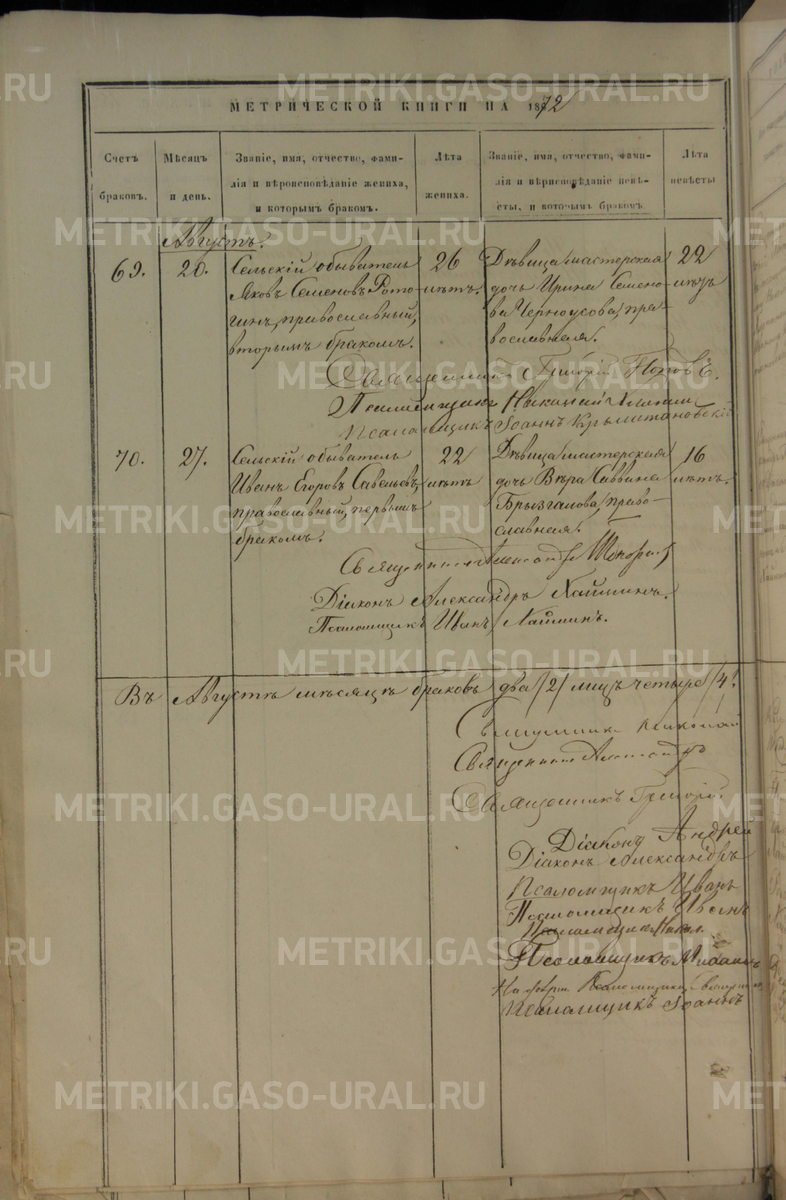 МЕТРИЧЕСКОЙ КНИГИ НА 1872
Счетъ браковъ.
Мѣсяцъ и день.
Званіе, имя, отчество, фами-
лія и вѣроисповѣданіе жениха,
и которымъ бракомъ.
Лѣта жениха.
Званіе, имя, отчество, фами-
лія и вѣрисповѣданіе невѣ-
сты, и которымъ бракомъ.
Лѣта невѣсты
Августъ.
69. 20. Сельскій обыватель 26 Дѣвица мастерская 22
Яковъ Семеновъ лѣтъ. дочь Ирина Семено- лѣтъ
православный, ва Черноусова, пра-
вторымъ бракомъ. вославная.
Священникъ Григорій Поповъ
Псаломщикъ
Псаломщикъ Іоаннъ
70. 27. Сельскій обыватель 22 Дѣвица мастерская 16
Иванъ Егоровъ Савельевъ, лѣтъ дочь Вѣра Саввина лѣтъ.
православный, первымъ Брызгалова, право-
бракомъ. славная.
Священникъ
Діаконъ Александръ Хаминъ.
Псаломщикъ Иванъ
Въ Августѣ мѣсяцѣ браковъ два /2/ лицъ четыре /4/.
Священникъ Николай
Священникъ Александръ
Священникъ Григорій
Діаконъ Андрей
Діаконъ Александръ
Псаломщикъ Иванъ
Псаломщикъ Иванъ
Псаломщикъ
Псаломщикъ
Псаломщикъ
Псаломщикъ Іоаннъ
METRIKI.GASO-URAL.RU